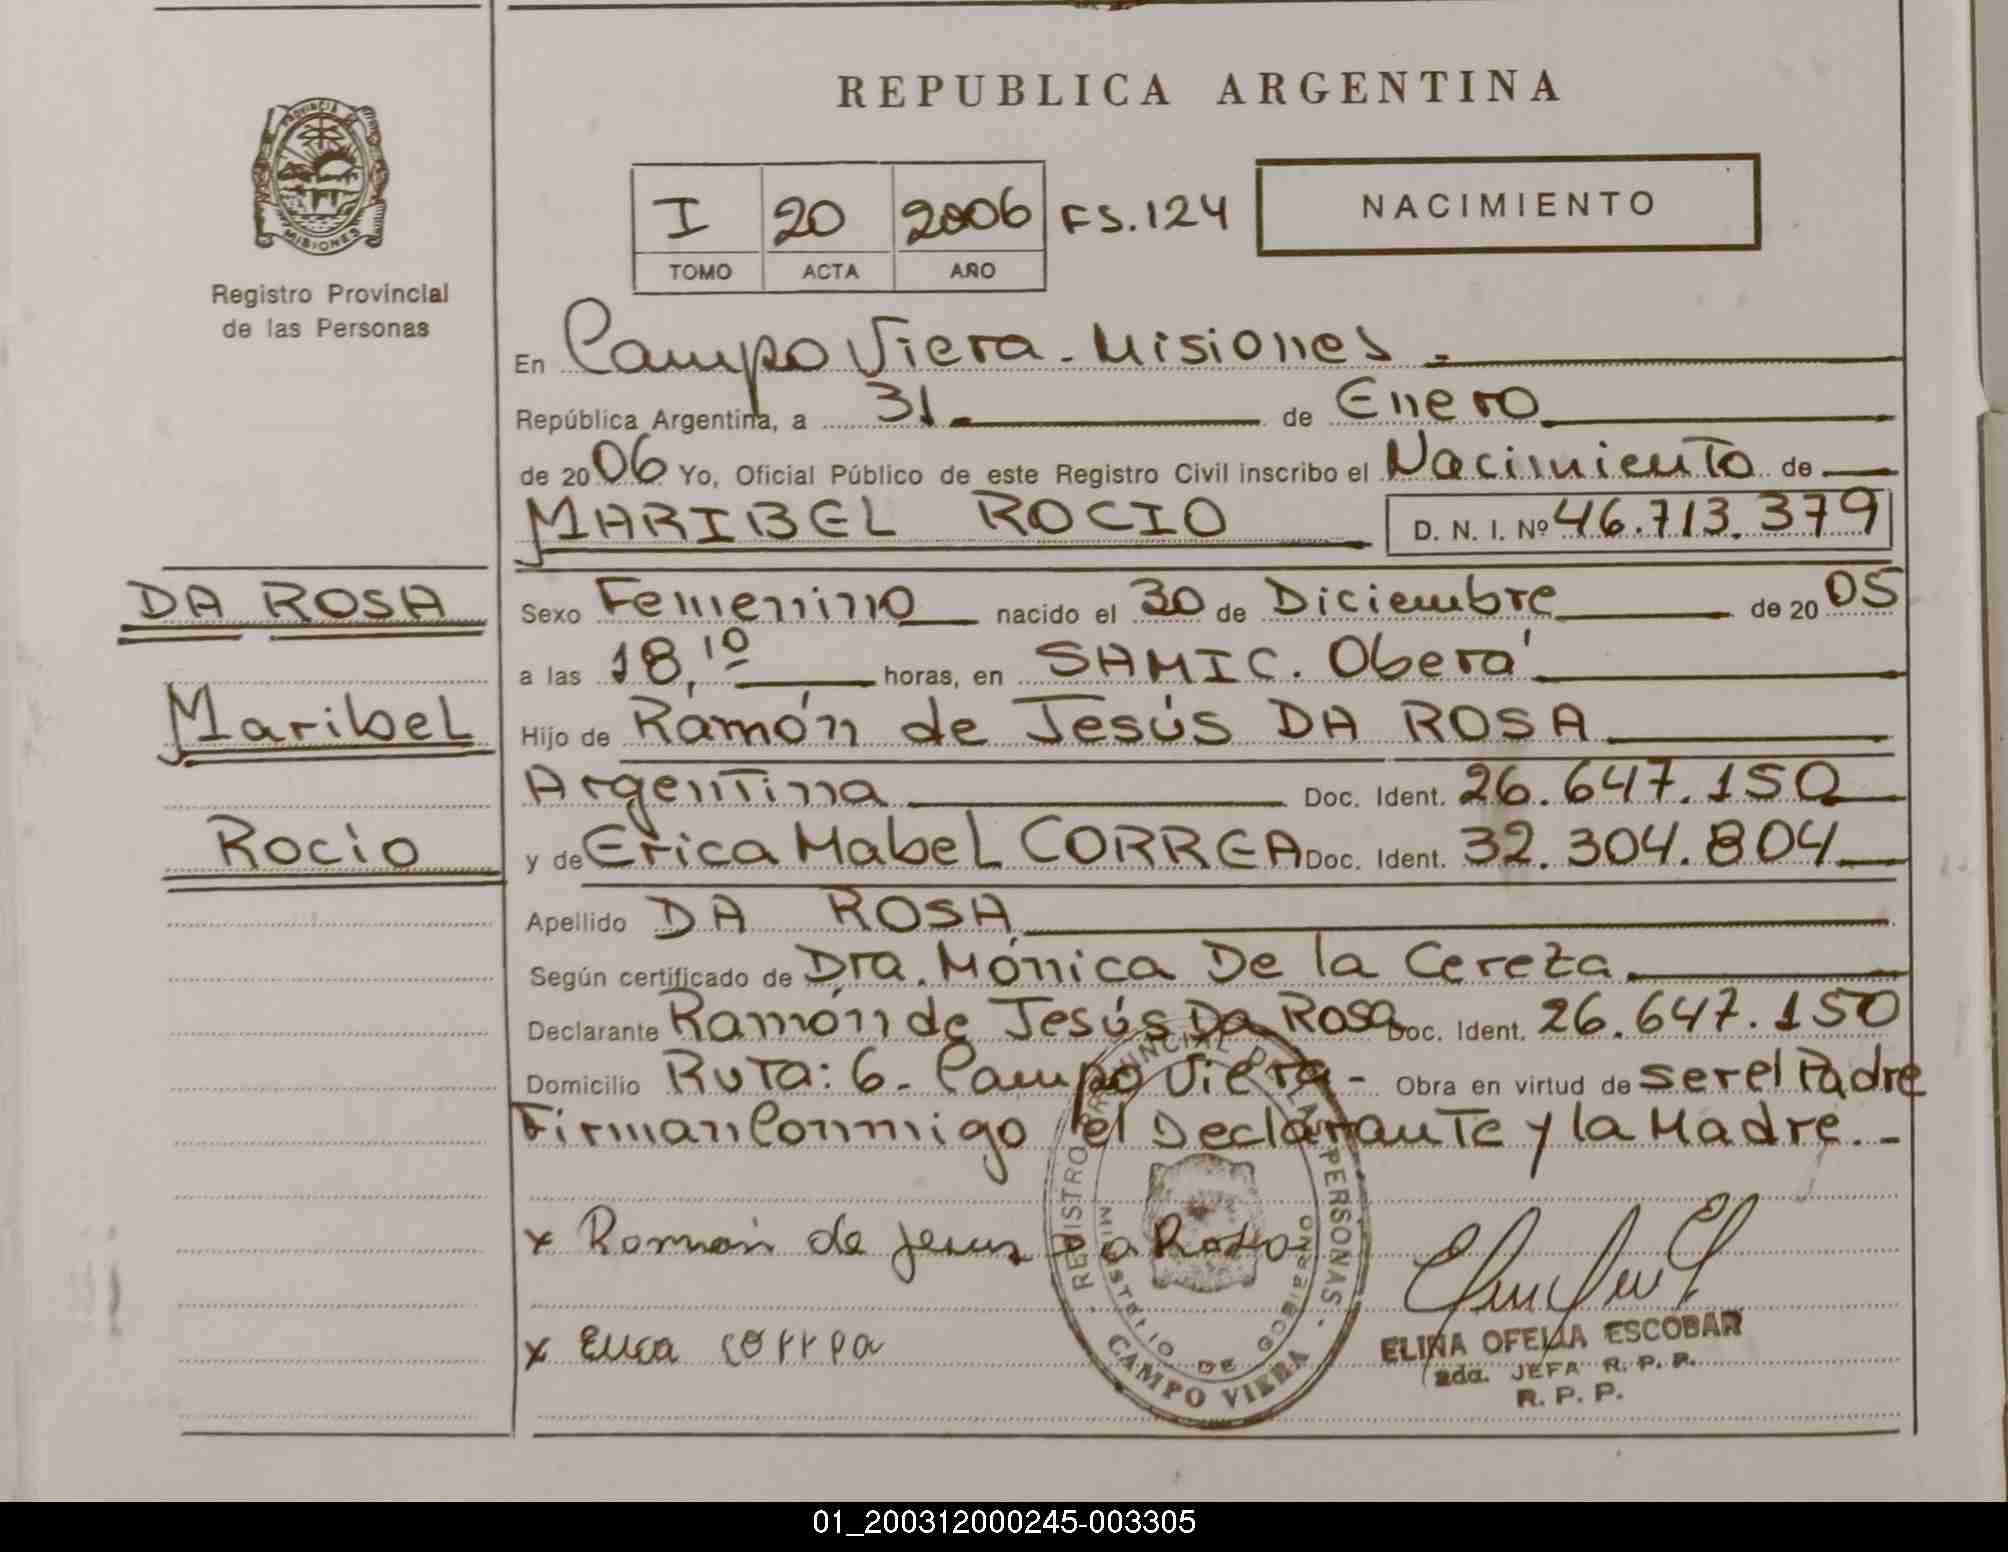 REPUBLICA ARGENTINA
PROVINCIA DE
MISIONES
Registro Provincial
de las Personas
I 20 2006 FS.124
TOMO ACTA AÑO
NACIMIENTO
En Campo Viera - Misiones.-
República Argentina, a 31 de Enero
de 2006 Yo, Oficial Público de este Registro Civil inscribo el Nacimiento de
MARIBEL ROCIO D. N. I. Nº 46.713.379
DA ROSA
Maribel
Rocio
Sexo Femenino nacido el 30 de Diciembre de 2005
a las 18,10 horas, en SAMIC. Oberá
Hijo de Ramón de Jesús DA ROSA
Argentina Doc. Ident. 26.647.150
y de Erica Mabel CORREA Doc. Ident. 32.304.804
Apellido DA ROSA
Según certificado de Dra. Mónica De la Cereza
Declarante Ramón de Jesús Da Rosa Doc. Ident. 26.647.150
Domicilio Ruta: 6 - Campo Viera - Obra en virtud de ser el Padre
Firman Conmigo el Declarante y la Madre.-
x Ramón de Jesus Da Rosa
x Erica correa
REGISTRO PROVINCIAL DE LAS PERSONAS
MINISTERIO DE GOBIERNO
CAMPO VIERA
ELINA OFELIA ESCOBAR
2da. JEFA R. P. P.
R. P. P.
01_200312000245-003305